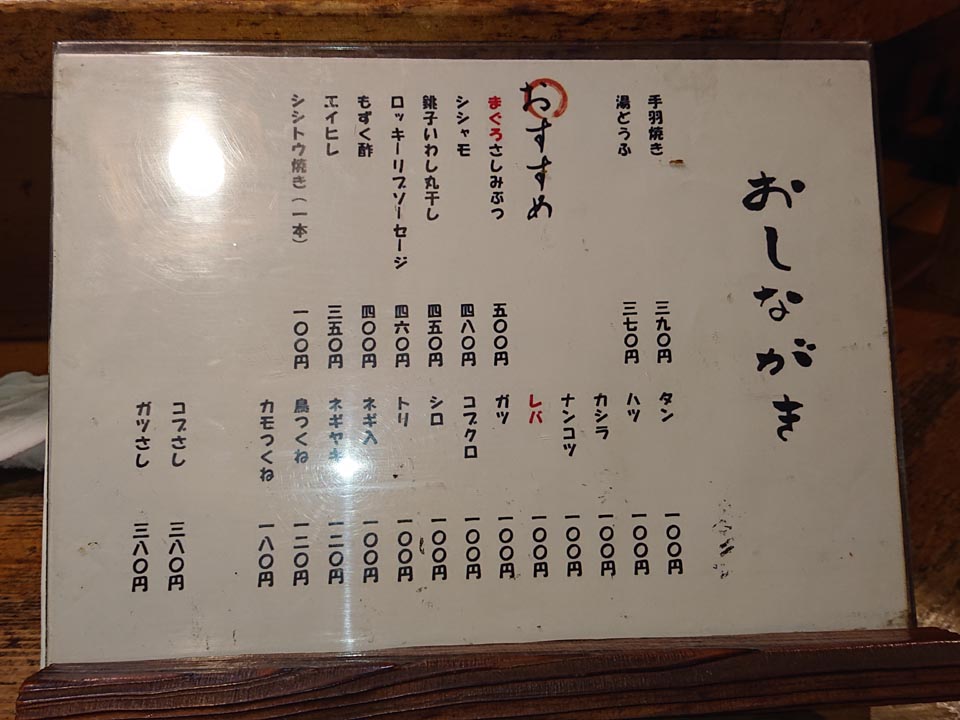 おしながき
手羽焼き 三九〇円
湯どうふ 三七〇円
おすすめ
まぐろさしみぶつ 五〇〇円
シシャモ 四八〇円
銚子いわし丸干し 四五〇円
ロッキーリブソーセージ 四六〇円
もずく酢 四〇〇円
エイヒレ 三五〇円
シシトウ焼き（一本） 一〇〇円
タン 一〇〇円
ハツ 一〇〇円
カシラ 一〇〇円
ナンコツ 一〇〇円
レバ 一〇〇円
ガツ 一〇〇円
コブクロ 一〇〇円
シロ 一〇〇円
トリ 一〇〇円
ネギ入 一〇〇円
ネギヤキ 一二〇円
鳥つくね 一二〇円
カモつくね 一八〇円
コブさし 三八〇円
ガツさし 三八〇円